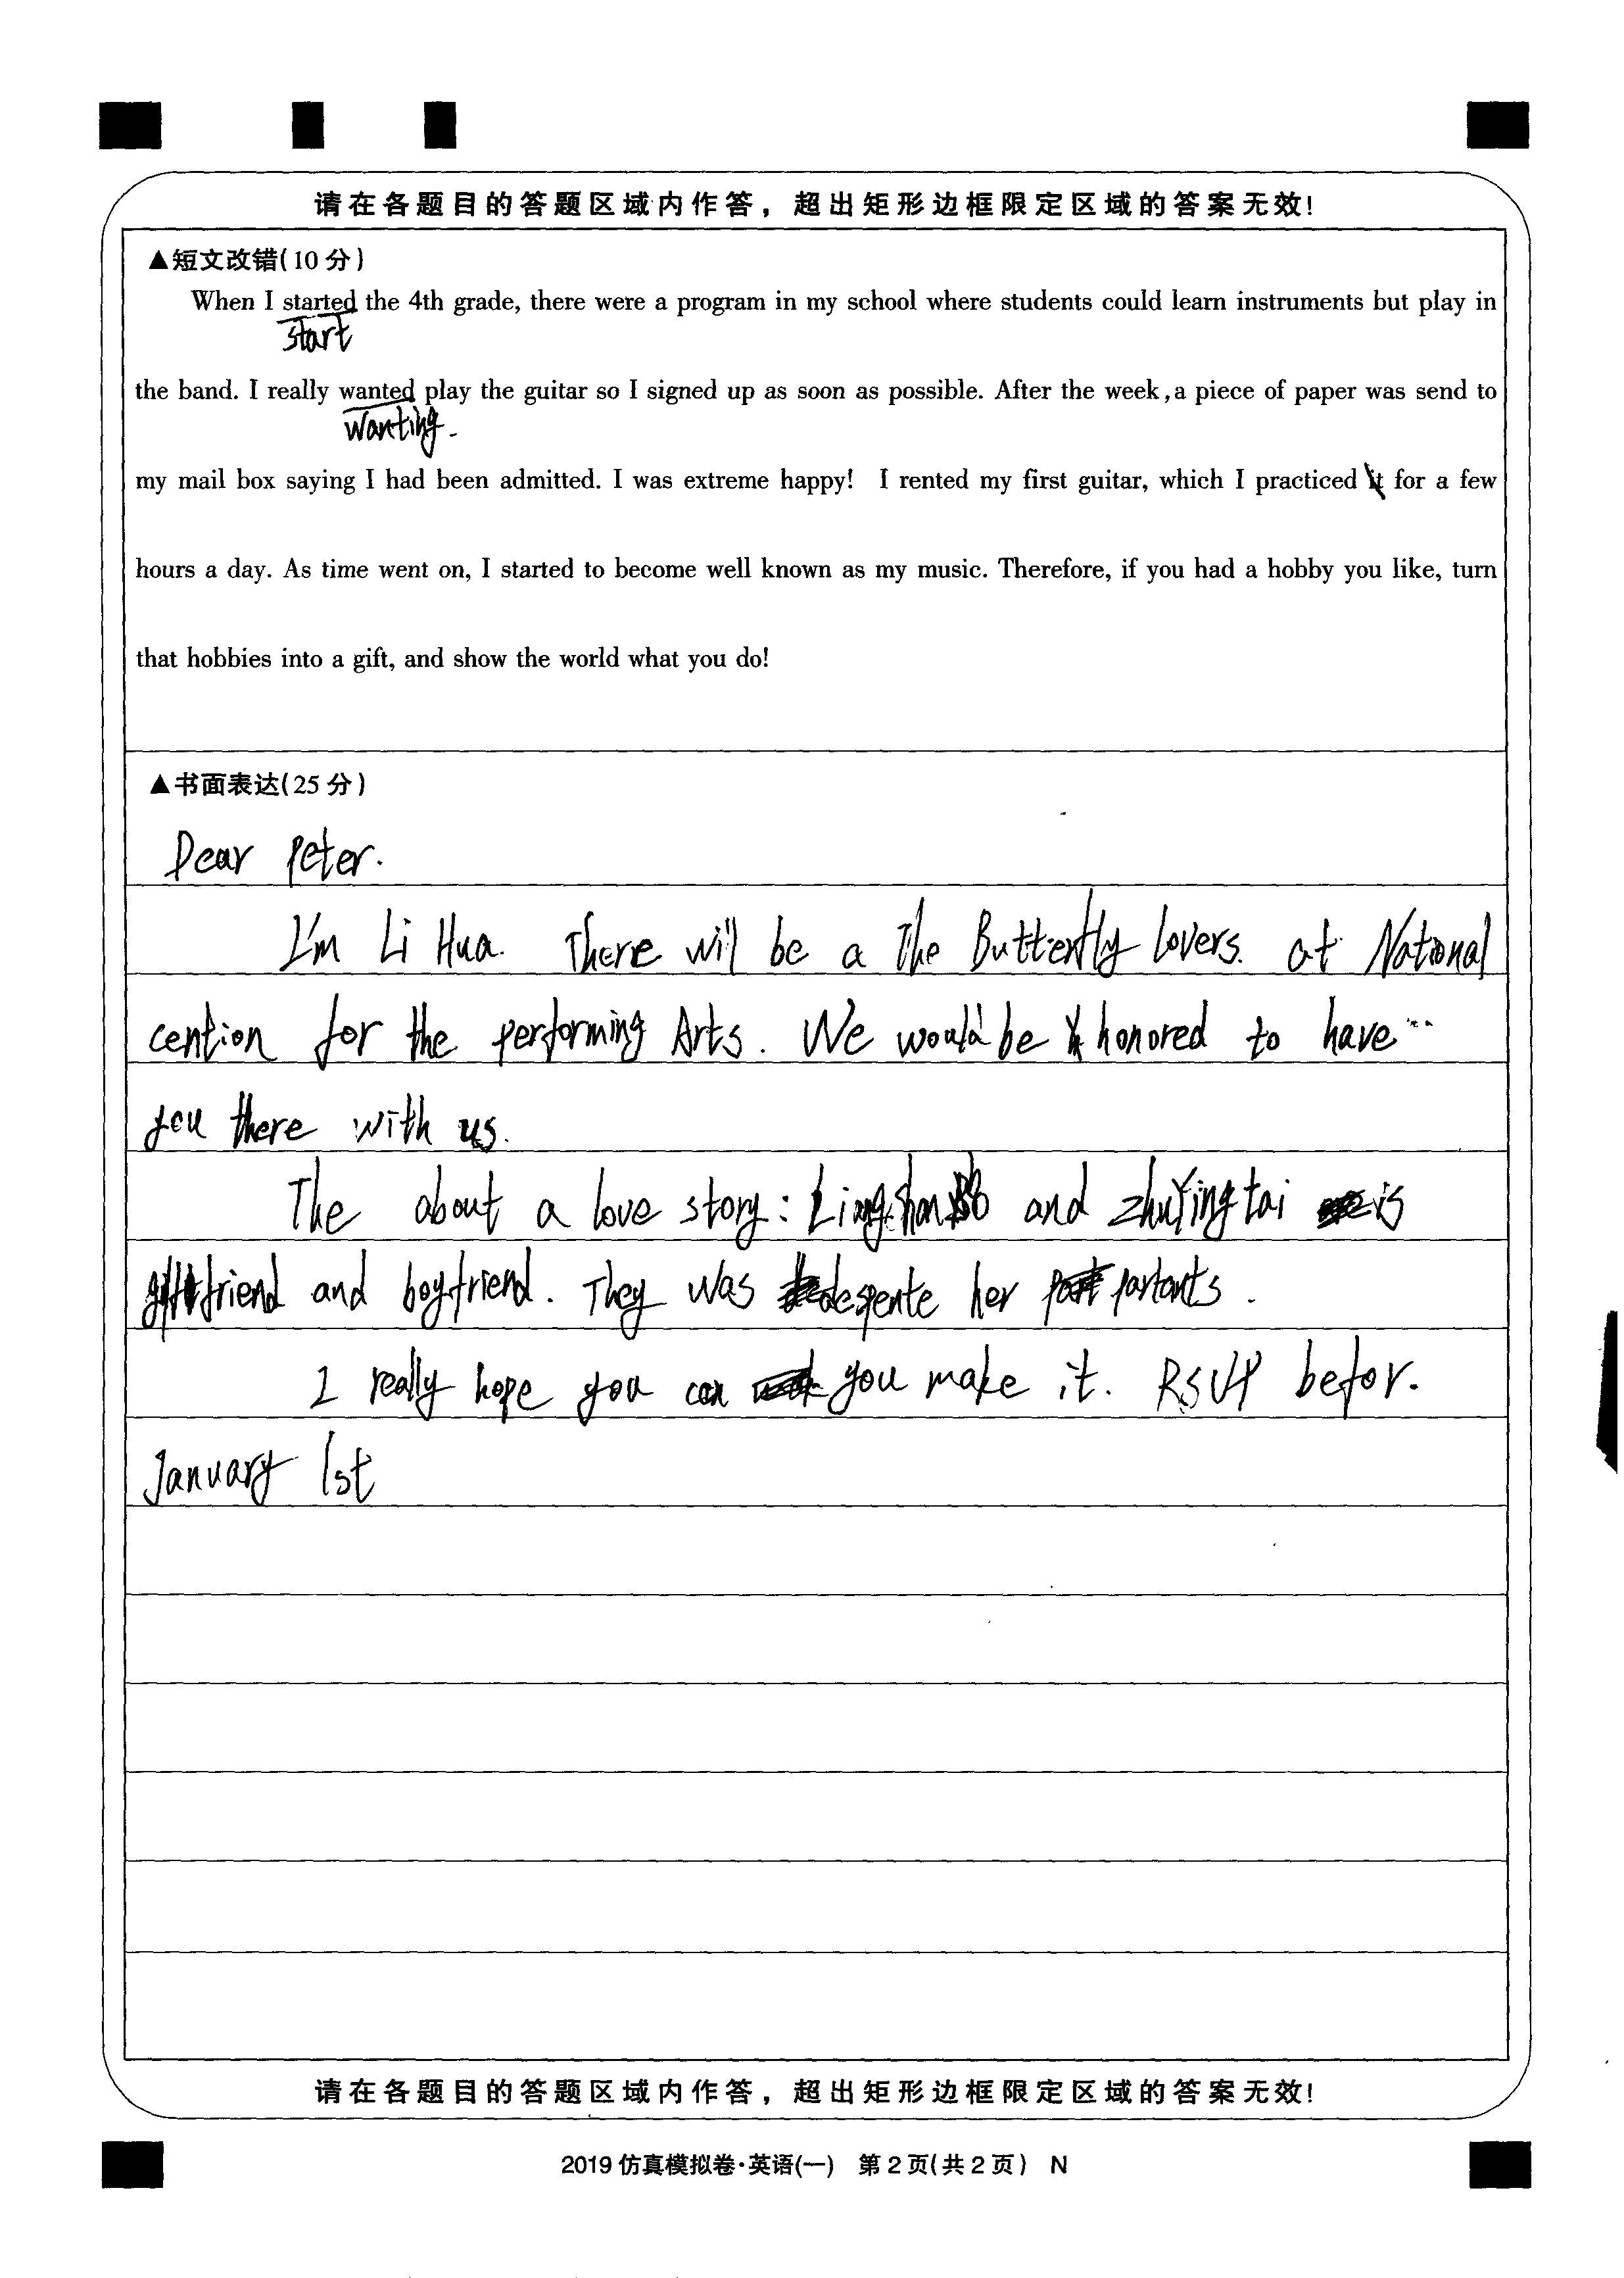 请在各题目的答题区域内作答，超出矩形边框限定区域的答案无效!
▲短文改错(10分)
When I started the 4th grade, there were a program in my school where students could learn instruments but play in
start
the band. I really wanted play the guitar so I signed up as soon as possible. After the week, a piece of paper was send to
wanting.
my mail box saying I had been admitted. I was extreme happy! I rented my first guitar, which I practiced it for a few
hours a day. As time went on, I started to become well known as my music. Therefore, if you had a hobby you like, turn
that hobbies into a gift, and show the world what you do!
▲书面表达(25分)
Dear Peter.
I'm Li Hua. There will be a The Butterfly lovers. at National
cention for the performing Arts. We would be honored to have
you there with us.
The about a love story: and zhuYingtai is
friend and boyfriend. They was despente her partants.
I really hope you can you make it. RSVP befor.
January 1st
请在各题目的答题区域内作答，超出矩形边框限定区域的答案无效!
2019仿真模拟卷·英语(一) 第2页(共2页) N